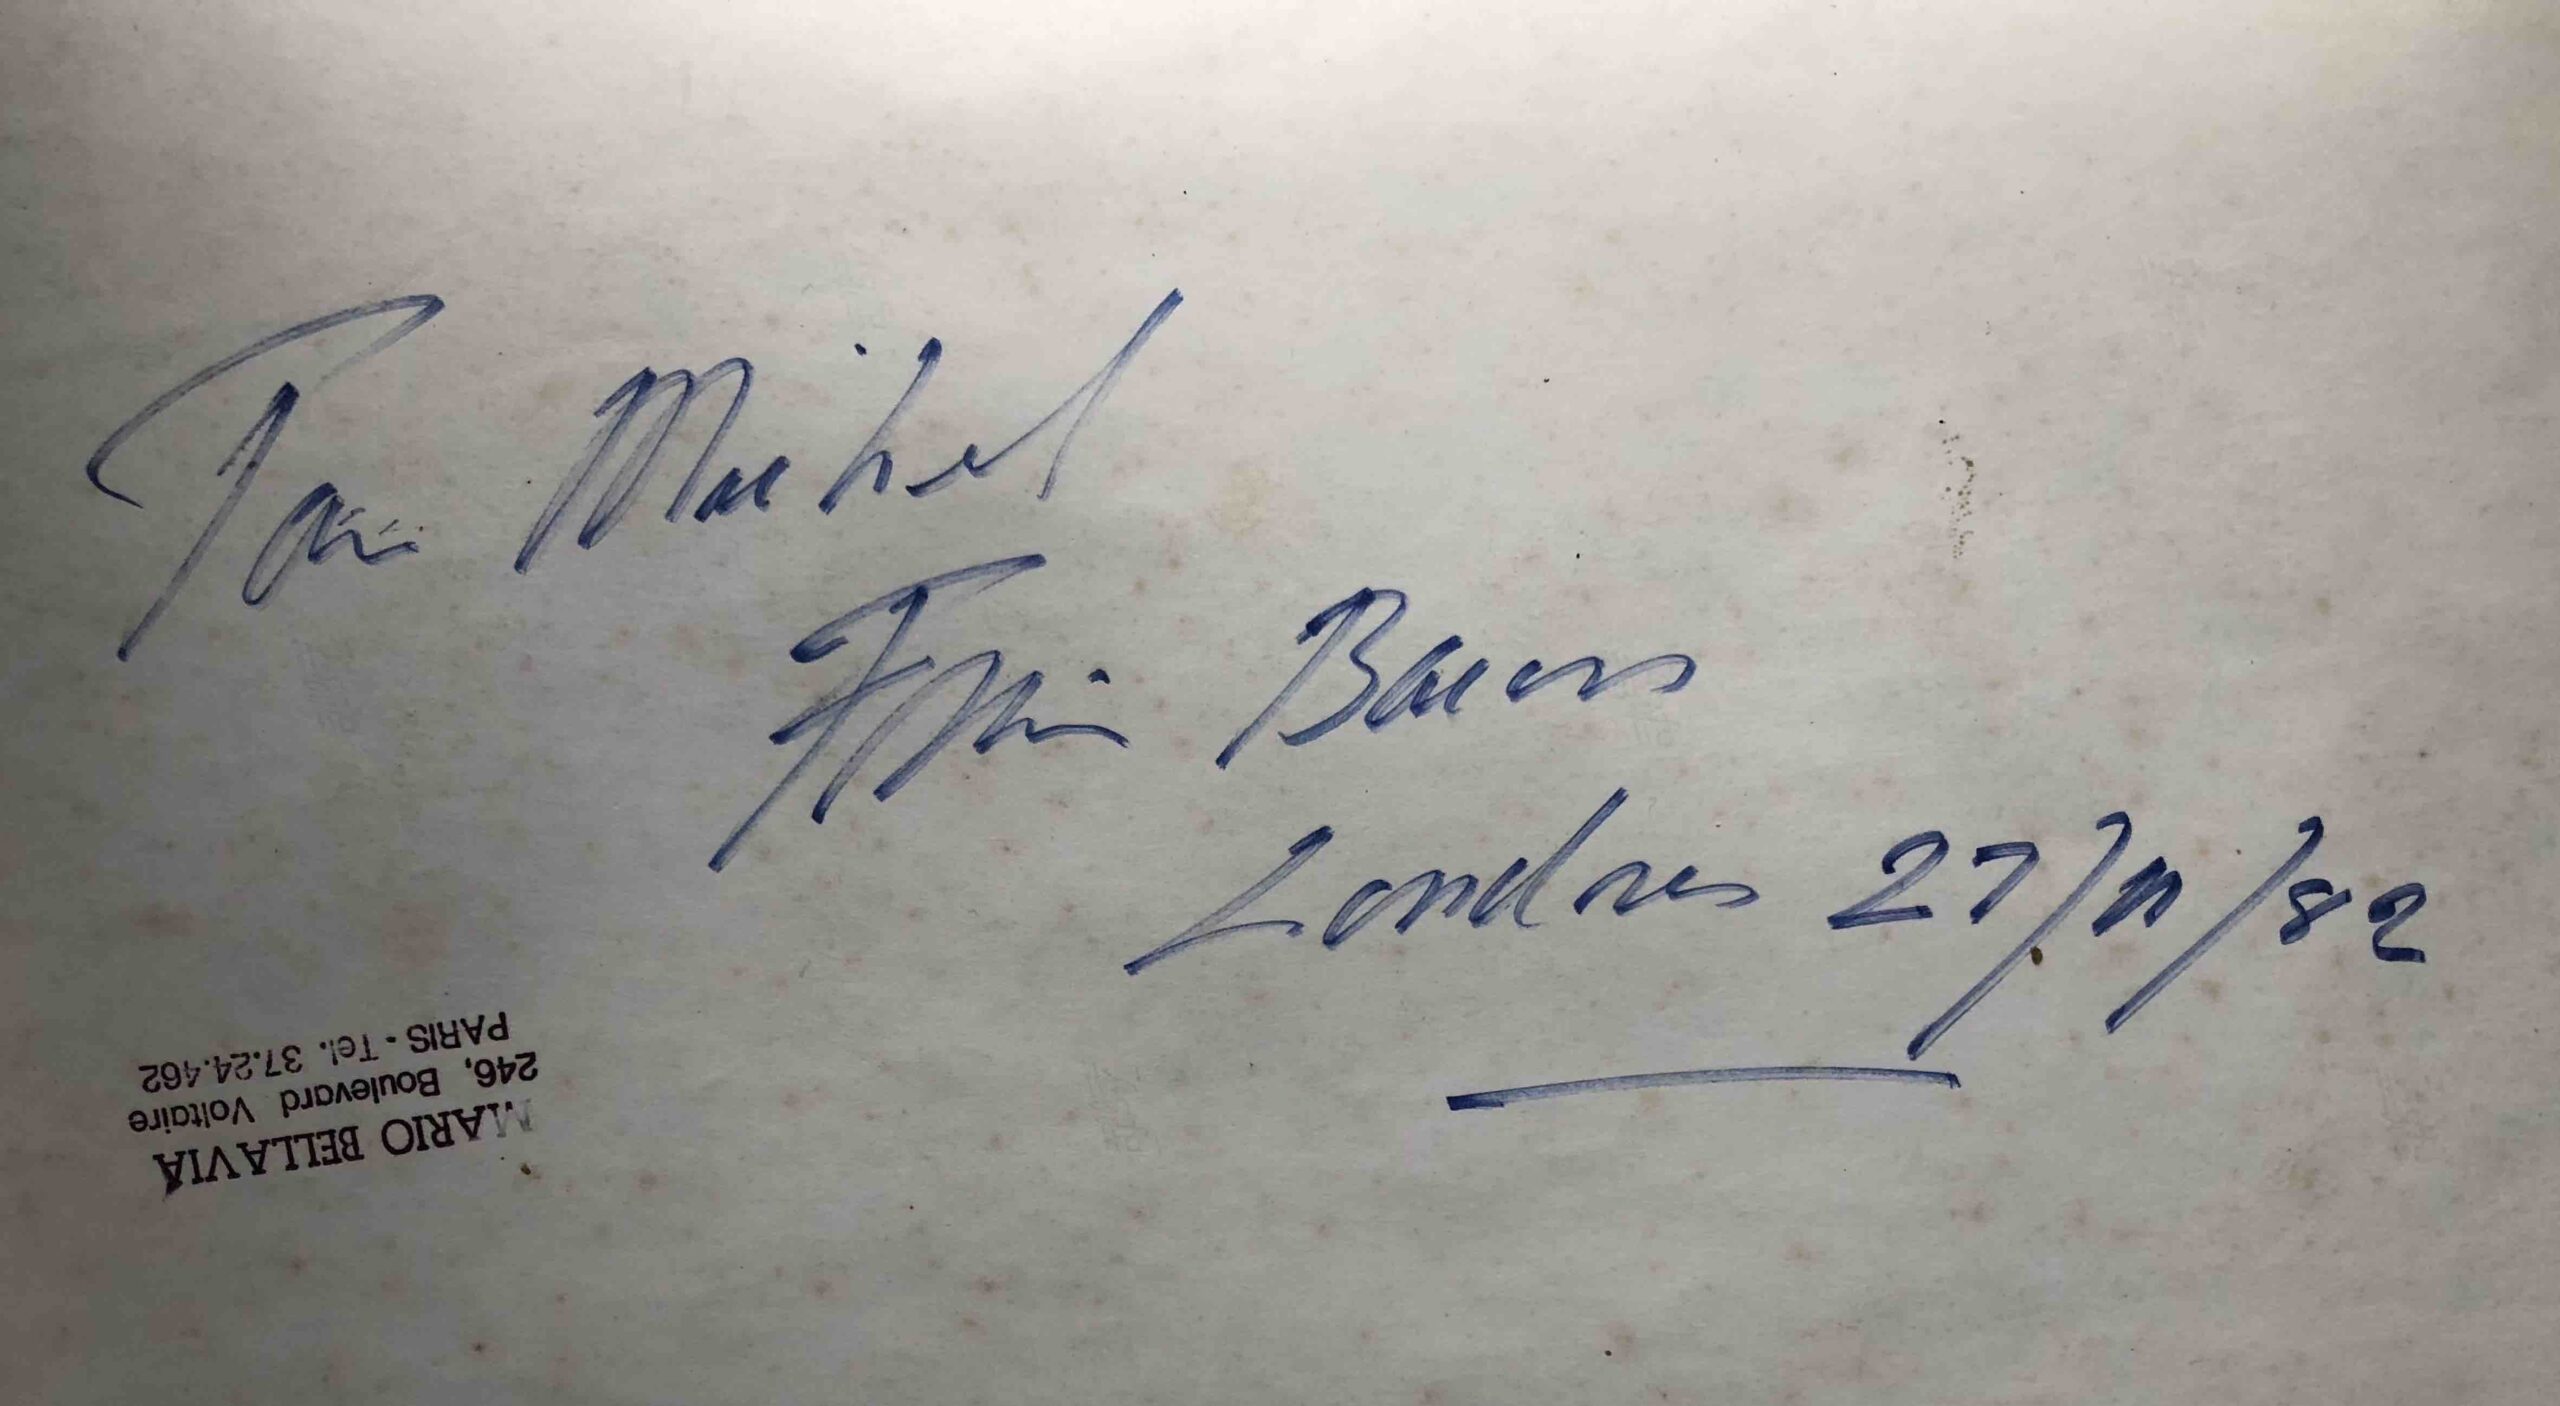 Pour Michel
Francis Bacon
Londres 27/11/82
MARIO BELLAVIA
246, Boulevard Voltaire
PARIS - Tel. 37.24.462